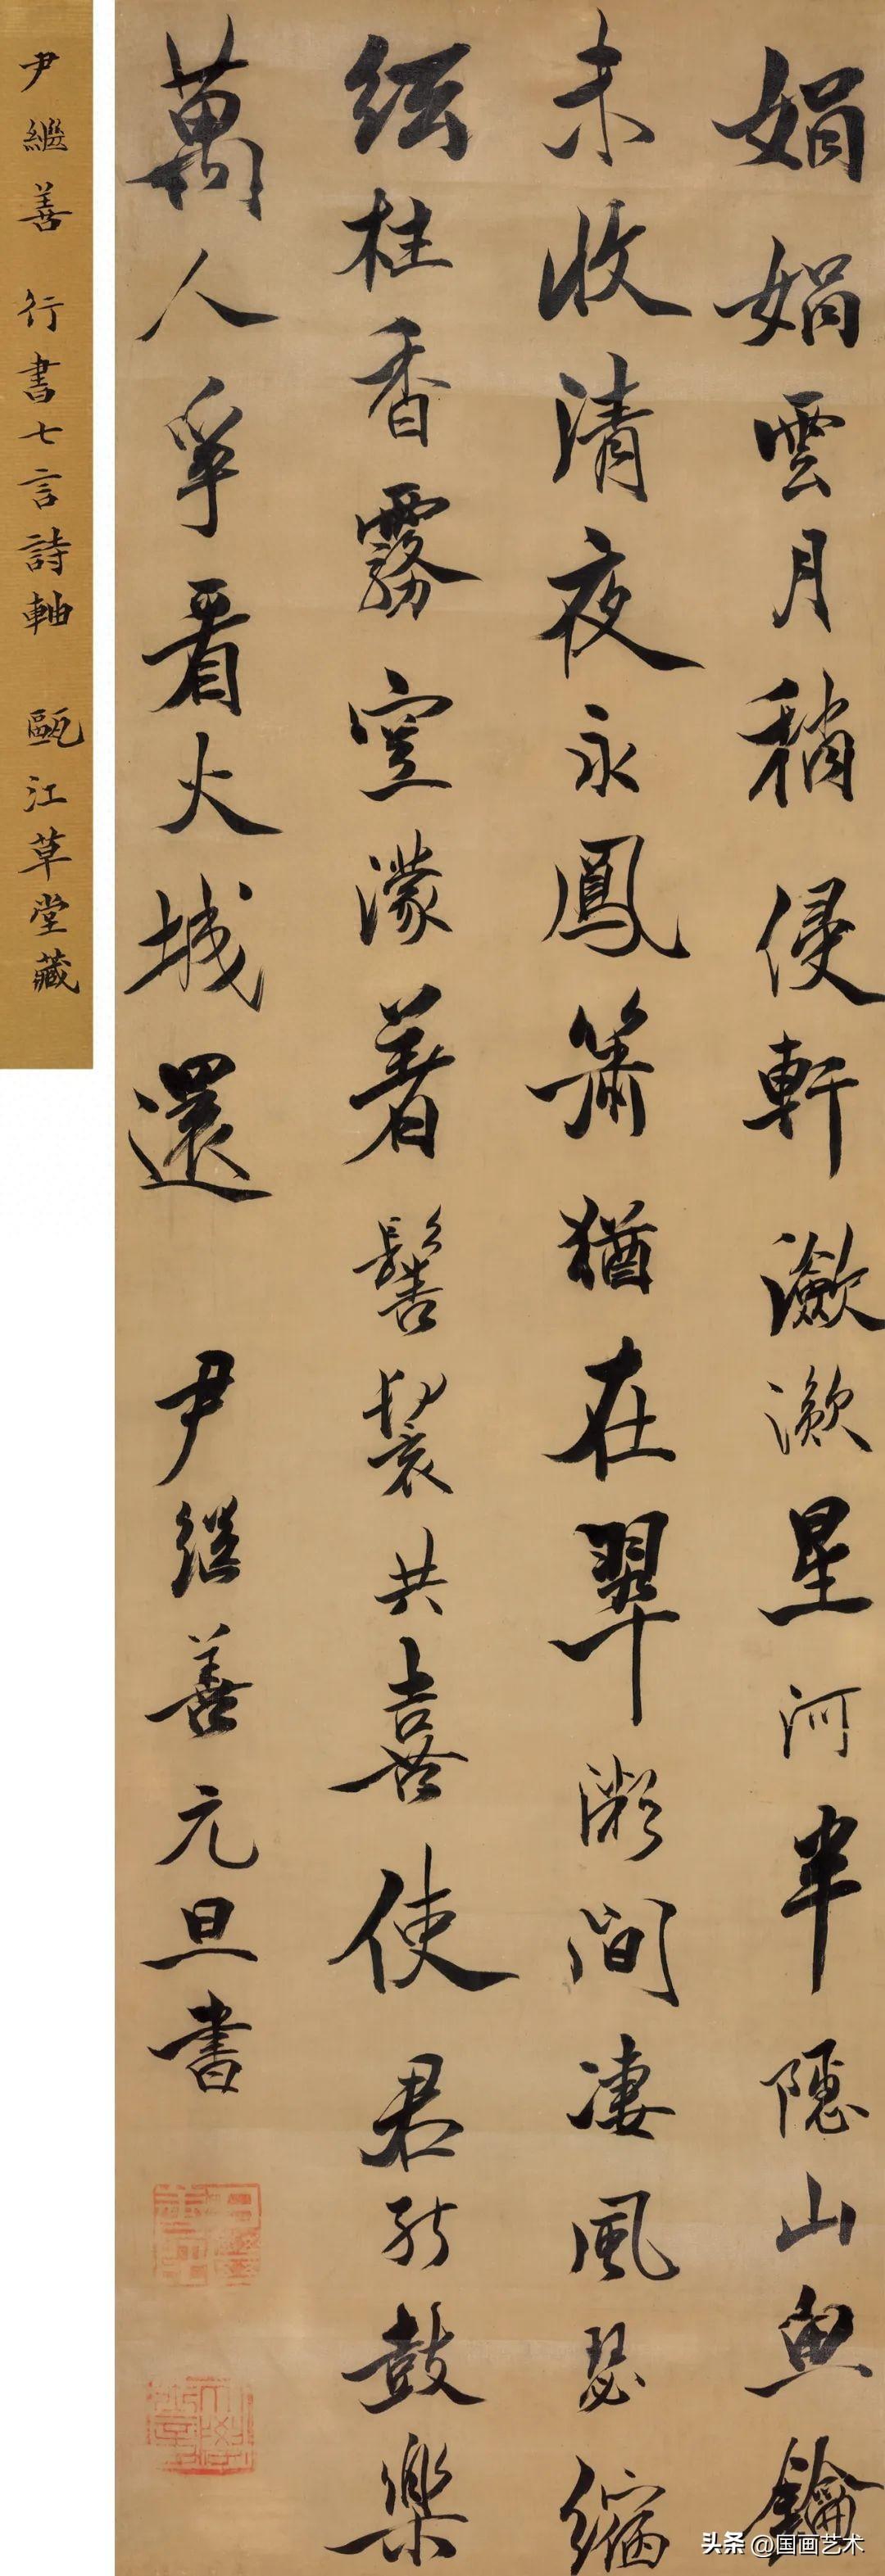 娟娟雲月稍侵軒瀲瀲星河半隱山魚鑰
未收清夜永鳳簫猶在翠微間淒風瑟縮
絃柱香霧空濛著鬢鬟共喜使君能鼓樂
萬人爭看火城還 尹繼善元旦書
尹繼善 行書七言詩軸 甌江草堂藏
头条 @国画艺术